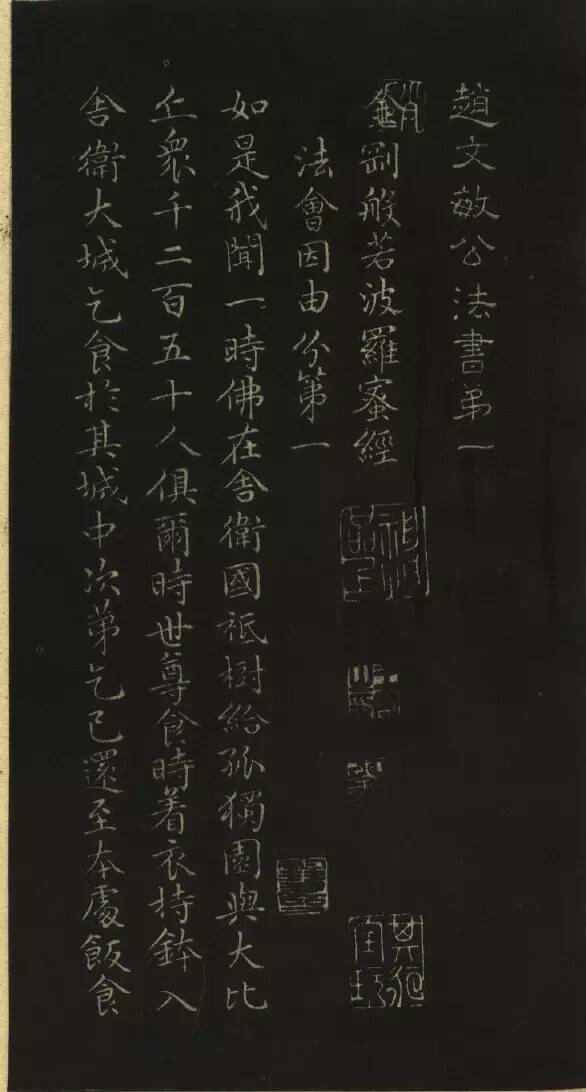 趙文敏公法書第一
金剛般若波羅蜜經
法會因由分第一
如是我聞一時佛在舍衛國祇樹給孤獨園與大比
丘衆千二百五十人俱爾時世尊食時着衣持鉢入
舍衛大城乞食於其城中次第乞已還至本處飯食